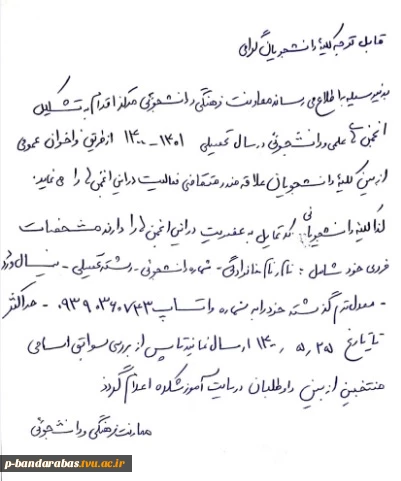 قابل توجه کلیهٔ دانشجویان گرامی
بدینوسیله به اطلاع می رساند معاونت فرهنگی دانشجویی مرکز اقدام به تشکیل
انجمن های علمی دانشجویی در سال تحصیلی ۱۴۰۱-۱۴۰۰ از طریق فراخوان عمومی
از بین کلیهٔ دانشجویان علاقه مند و متقاضی فعالیت در این انجمن ها را می نماید.
لذا کلیهٔ دانشجویانی که تمایل به عضویت در این انجمن ها را دارند مشخصات
فردی خود شامل : نام و نام خانوادگی - شماره دانشجویی - رشته تحصیلی - نیمسال ورود
- معدل ترم گذشته خود را به شماره واتساپ ۰۹۳۹۰۳۶۰۷۳۳ - حداکثر
تا تاریخ ۱۴۰۰/۵/۲۵ ارسال نمایند تا پس از بررسی سوابق اسامی
منتخبین از بین داوطلبان در سایت آموزشکده اعلام گردد
معاونت فرهنگی و دانشجویی
p-bandarabas.tvu.ac.ir